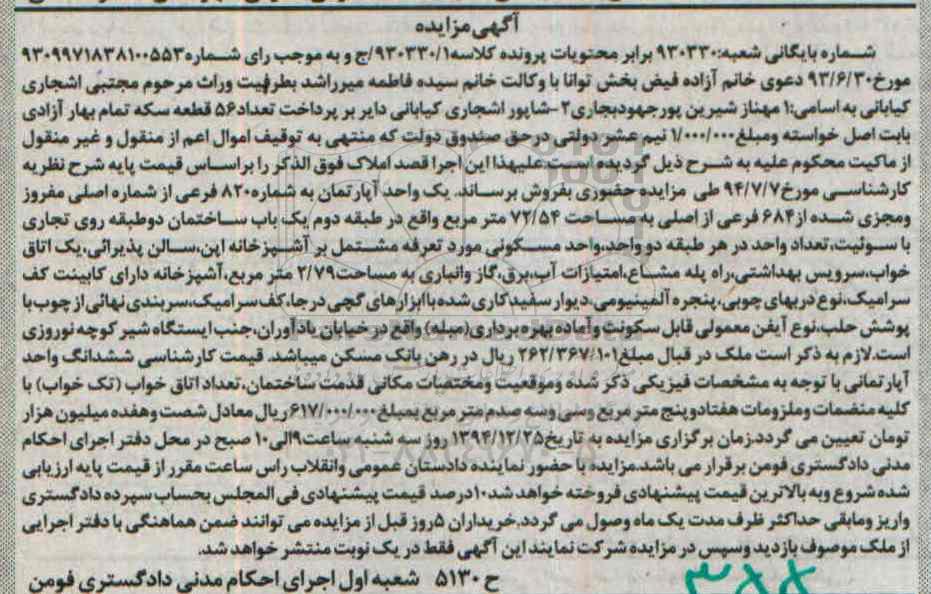 آگهی مزایده
شماره بایگانی شعبه:۹۳۰۳۳۰ برابر محتویات پرونده کلاسه۹۳۰۳۳۰/۱/ج و به موجب رای شماره۹۳۰۹۹۷۱۸۳۸۱۰۰۵۵۳
مورخ۹۳/۶/۳۰ دعوی خانم آزاده فیض بخش توانا با وکالت خانم سیده فاطمه میرراشد بطرفیت وراث مرحوم مجتبی اشجاری
کیابانی به اسامی:۱ مهناز شیرین پورجهودبجاری۲-شاپور اشجاری کیابانی دایر بر پرداخت تعداد۵۶ قطعه سکه تمام بهار آزادی
بابت اصل خواسته ومبلغ۱/۰۰۰/۰۰۰ نیم عشر دولتی درحق صندوق دولت که منتهی به توقیف اموال اعم از منقول و غیر منقول
از ماکیت محکوم علیه به شرح ذیل گردیده است علیهذا این اجرا قصد املاک فوق الذکر را براساس قیمت پایه شرح نظریه
کارشناسی مورخ۹۴/۷/۷ طی مزایده حضوری بفروش برساند. یک واحد آپارتمان به شماره۸۲۰ فرعی از شماره اصلی مفروز
ومجزی شده از۶۸۴ فرعی از اصلی به مساحت ۷۲/۵۴ متر مربع واقع در طبقه دوم یک باب ساختمان دوطبقه روی تجاری
با سوئیت،تعداد واحد در هر طبقه دو واحد،واحد مسکونی مورد تعرفه مشتمل بر آشپزخانه اپن،سالن پذیرائی،یک اتاق
خواب،سرویس بهداشتی،راه پله مشاع،امتیازات آب،برق،گاز وانباری به مساحت۲/۷۹ متر مربع،آشپزخانه دارای کابینت کف
سرامیک،نوع دربهای چوبی،پنجره آلمینیومی،دیوار سفیدکاری شده باابزارهای گچی درجا،کف سرامیک،سربندی نهائی از چوب با
پوشش حلب،نوع آیفن معمولی قابل سکونت وآماده بهره برداری(مبله) واقع در خیابان یادآوران،جنب ایستگاه شیر کوچه نوروزی
است.لازم به ذکر است ملک در قبال مبلغ۲۶۲/۳۶۷/۱۰۱ ریال در رهن بانک مسکن میباشد. قیمت کارشناسی ششدانگ واحد
آپارتمانی با توجه به مشخصات فیزیکی ذکر شده وموقعیت ومختصات مکانی قدمت ساختمان،تعداد اتاق خواب (تک خواب) با
کلیه منضمات وملزومات هفتادوپنج متر مربع وسی وسه صدم متر مربع بمبلغ۶۱۷/۰۰۰/۰۰۰ریال معادل شصت وهفده میلیون هزار
تومان تعیین می گردد.زمان برگزاری مزایده به تاریخ۱۳۹۴/۱۲/۲۵ روز سه شنبه ساعت۹الی۱۰ صبح در محل دفتر اجرای احکام
مدنی دادگستری فومن برقرار می باشد.مزایده با حضور نماینده دادستان عمومی وانقلاب راس ساعت مقرر از قیمت پایه ارزیابی
شده شروع وبه بالاترین قیمت پیشنهادی فروخته خواهد شد۱۰درصد قیمت پیشنهادی فی المجلس بحساب سپرده دادگستری
واریز ومابقی حداکثر ظرف مدت یک ماه وصول می گردد.خریداران ۵روز قبل از مزایده می توانند ضمن هماهنگی با دفتر اجرایی
از ملک موصوف بازدید وسپس در مزایده شرکت نمایند این آگهی فقط در یک نوبت منتشر خواهد شد.
ح ۵۱۳۰ شعبه اول اجرای احکام مدنی دادگستری فومن